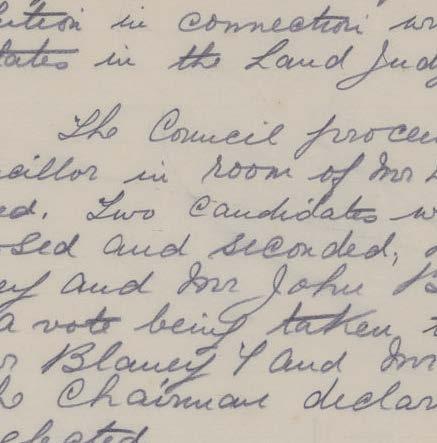 lution in connection w
tates in the Land Judg
The Council procee
ncillor in room of Mr
ed. Two candidates w
osed and seconded,
ey and Mr John B
a vote being taken
r Blaney 4 and Mr
he Chairman declar
elected